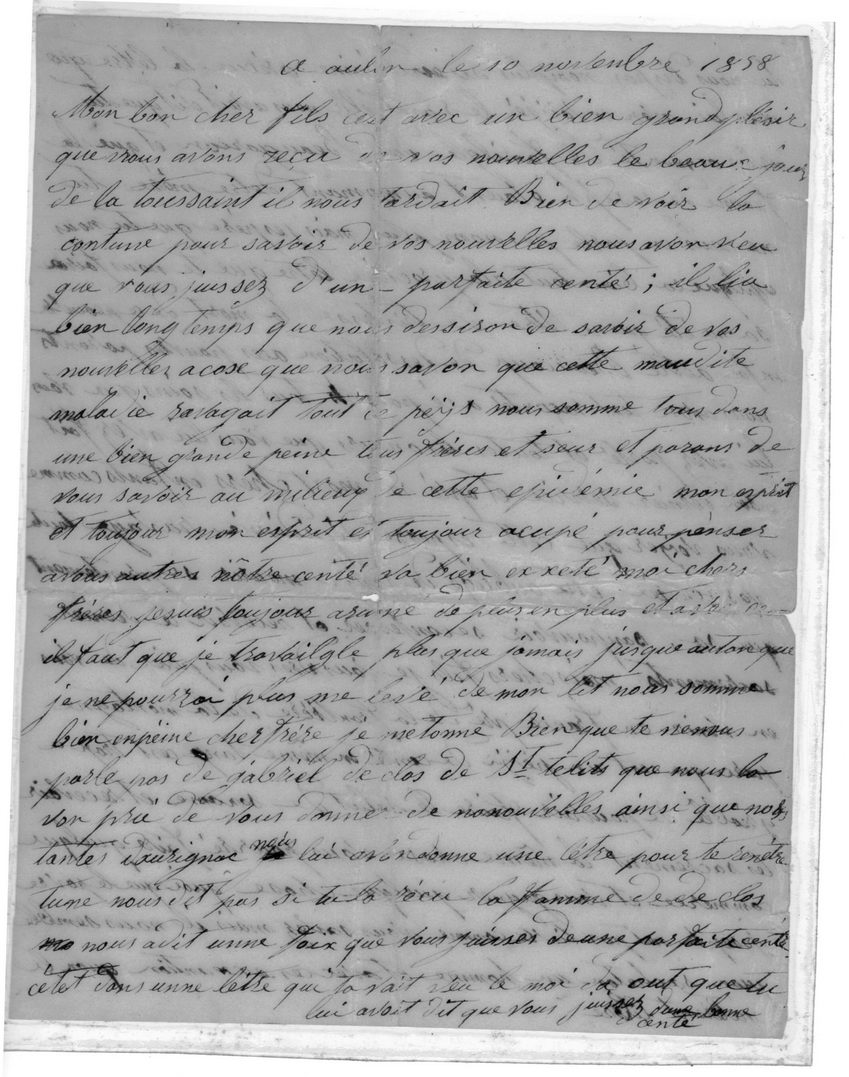 a aulin le 10 novenbre 1858
Mon bon cher fils cest avec un bien grand plésir
que nous avons reçu de vos nouvelles le beaux jour
de la toussaint il nous tardait Bien de voir la
contune pour savoir de vos nouvelles nous avon veu
que vous juissez d'un parfaite centé ; il lia
bien longtemps que nous dessiron de savoir de vos
nouvelles acose que nous savon que cette maudite
maladie ravagait tout ce péijs nous somme tous dans
une bien grande peine tus fréres et seur et parans de
vous savoir au milieuq de cette epidémie mon esprit
et toujour mon esprit et toujour ocupé pour penser
avous autres nôtre centé va bien exxeté moi chers
fréres je suis toujour aruné de plus en plus et avec
il faut que je travailgle plus que jamais jusque autan que
je ne pourrai plus me levé de mon lit nous somme
bien enpeine cher frére je metonne Bien que te nenous
parle pas de gabriel de clos de St telits que nous la
von prié de vous donne de nonouvelles ainsi que nos
tantes daurignac nous lui avon donne une létre pour te remétre
tune nous dit pas si tu la récu la famme de de clos
nous adit unne foix que vous juisses de une parfaite centé
cétet dans unne létre qui javait veu le moi da out que tu
lui avait dit que vous juissez dune bonne
centé